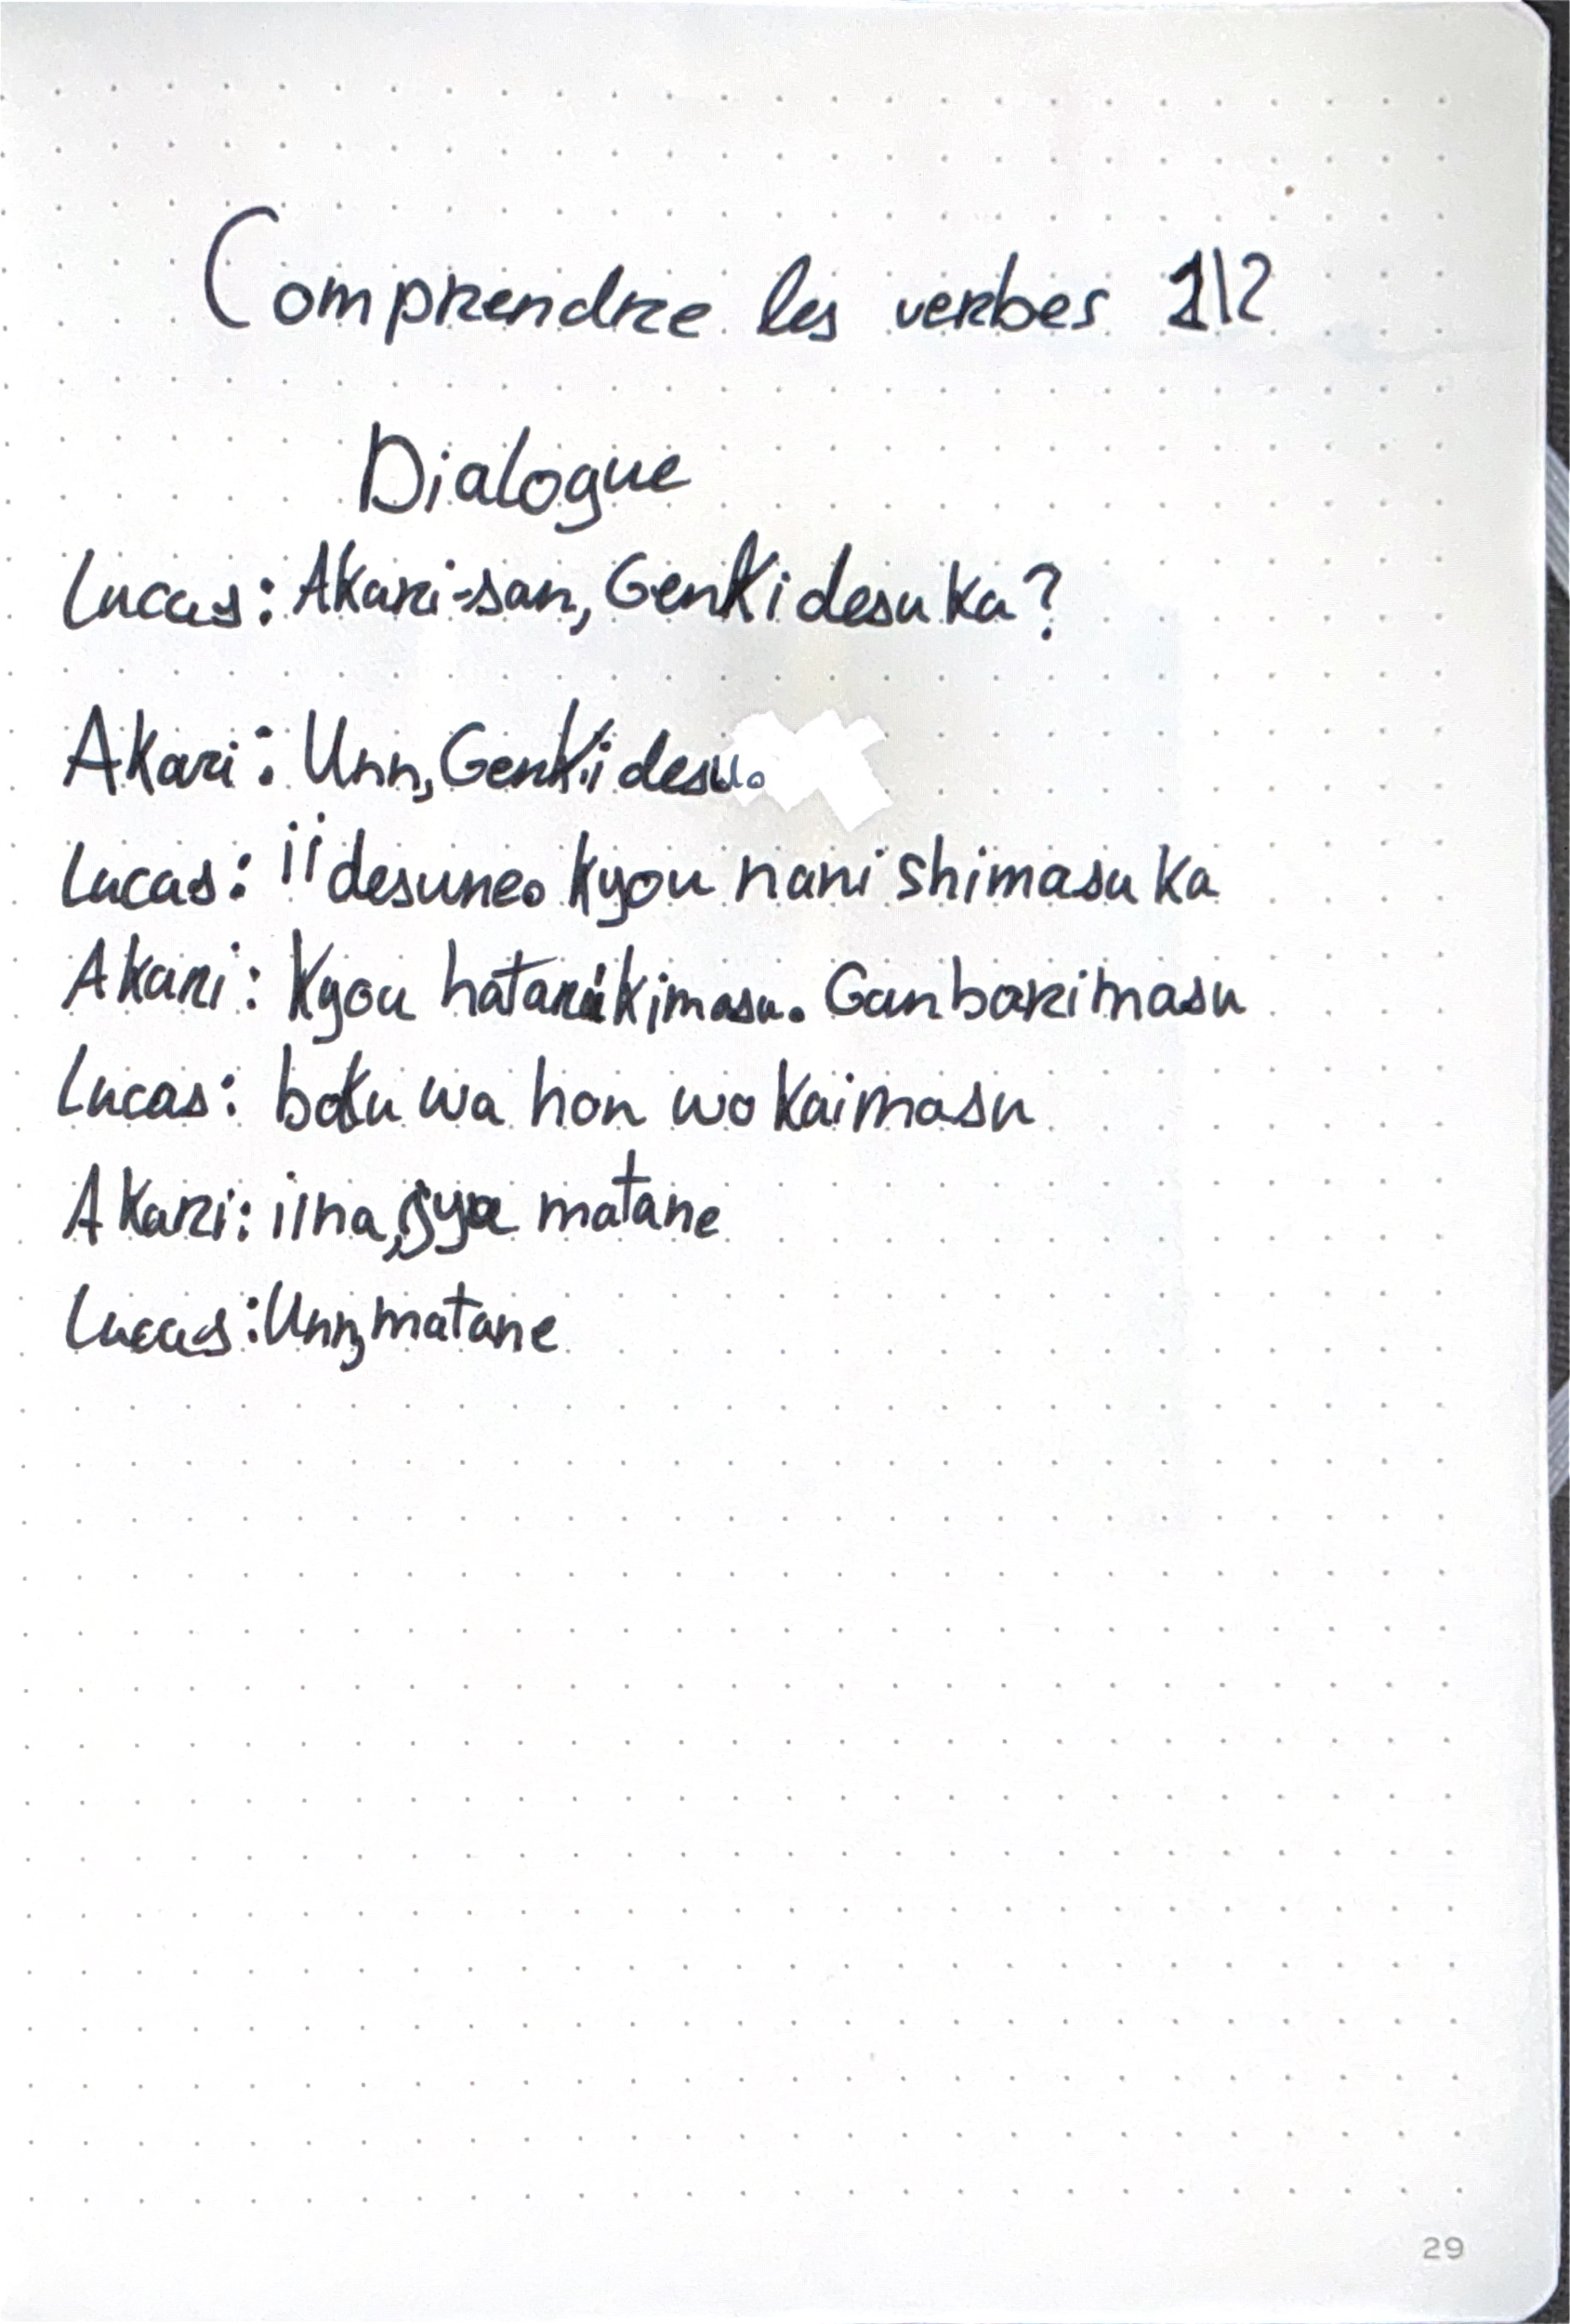 Comprendre les verbes 1\2
Dialogue
Lucas: Akari-san, Genki desu ka?
Akari: Unn, Genki desu.
Lucas: ii desune. Kyou nani shimasu ka
Akari: Kyou hatarakimasu. Ganbarimasu
Lucas: boku wa hon wo kaimasu
Akari: iina, jya matane
Lucas: Unn, matane
29